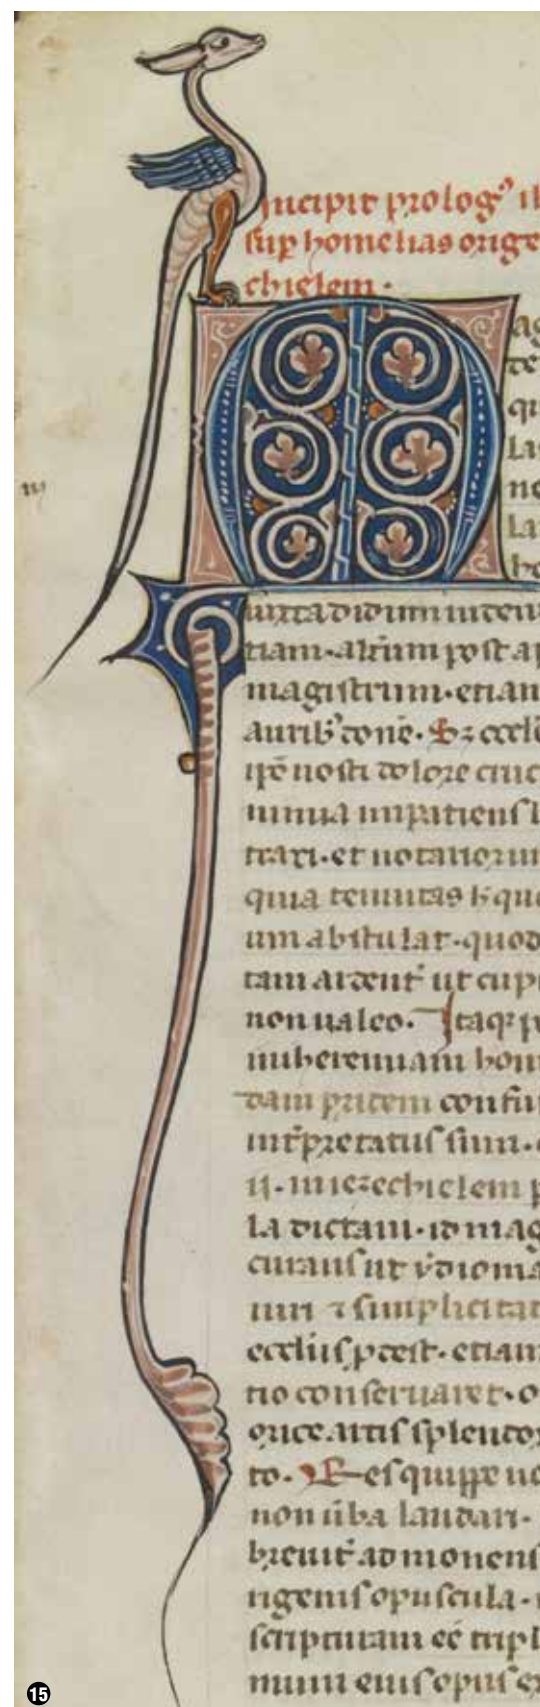 Incipit prolog⁹ il
sup̱ homelias orige
chielem ·
M
ag
te
qu
la
no
la
ho
iuxta didimi inten
tiam · alt̓um post ap
magistrum · etian
aurib; done · Sz eccl̓e
dolore cruc
impatiens
traxi · et notariorum
quia tenuitas
um abstulat · quod
tam ardent̓ ut cupi
non ualeo · Itaqꝫ p
hom
dam pridem confu
int̓pretatus sum ·
ii · in iezechielem p
la dictam · id mag
curans ut ydioma
uiri ⁊ simplicitat
etiam
tio conseruaret · o
orice artis splendor
to · Res quippe uo
non ūba laudari ·
breuit̓ admonens
rigenis opuscula ·
scripturam eē tripl
mum eius opus ex
15